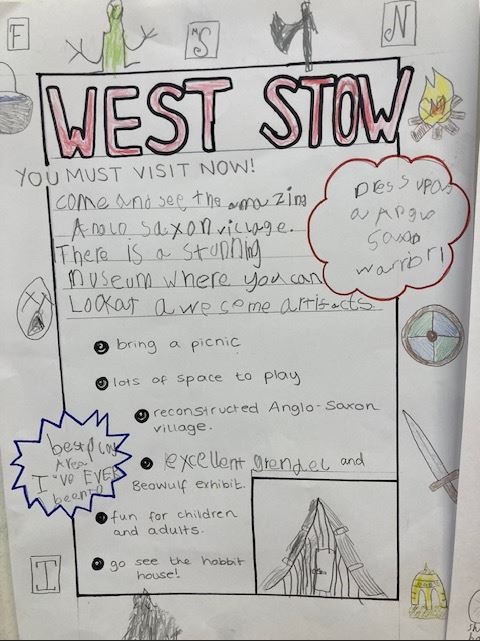 F
M S
N
WEST STOW
YOU MUST VISIT NOW!
come and see the amazing
Anglo saxon village.
There is a stunning
museum where you can
Look at awesome artifacts.
Dress up as
a Anglo
Saxon
warrior!
bring a picnic
lots of space to play
reconstructed Anglo-Saxon
village.
excellent grendel and
Beowulf exhibit.
fun for children
and adults.
go see the hobbit
house!
best play
Area
I've EVER
been
I